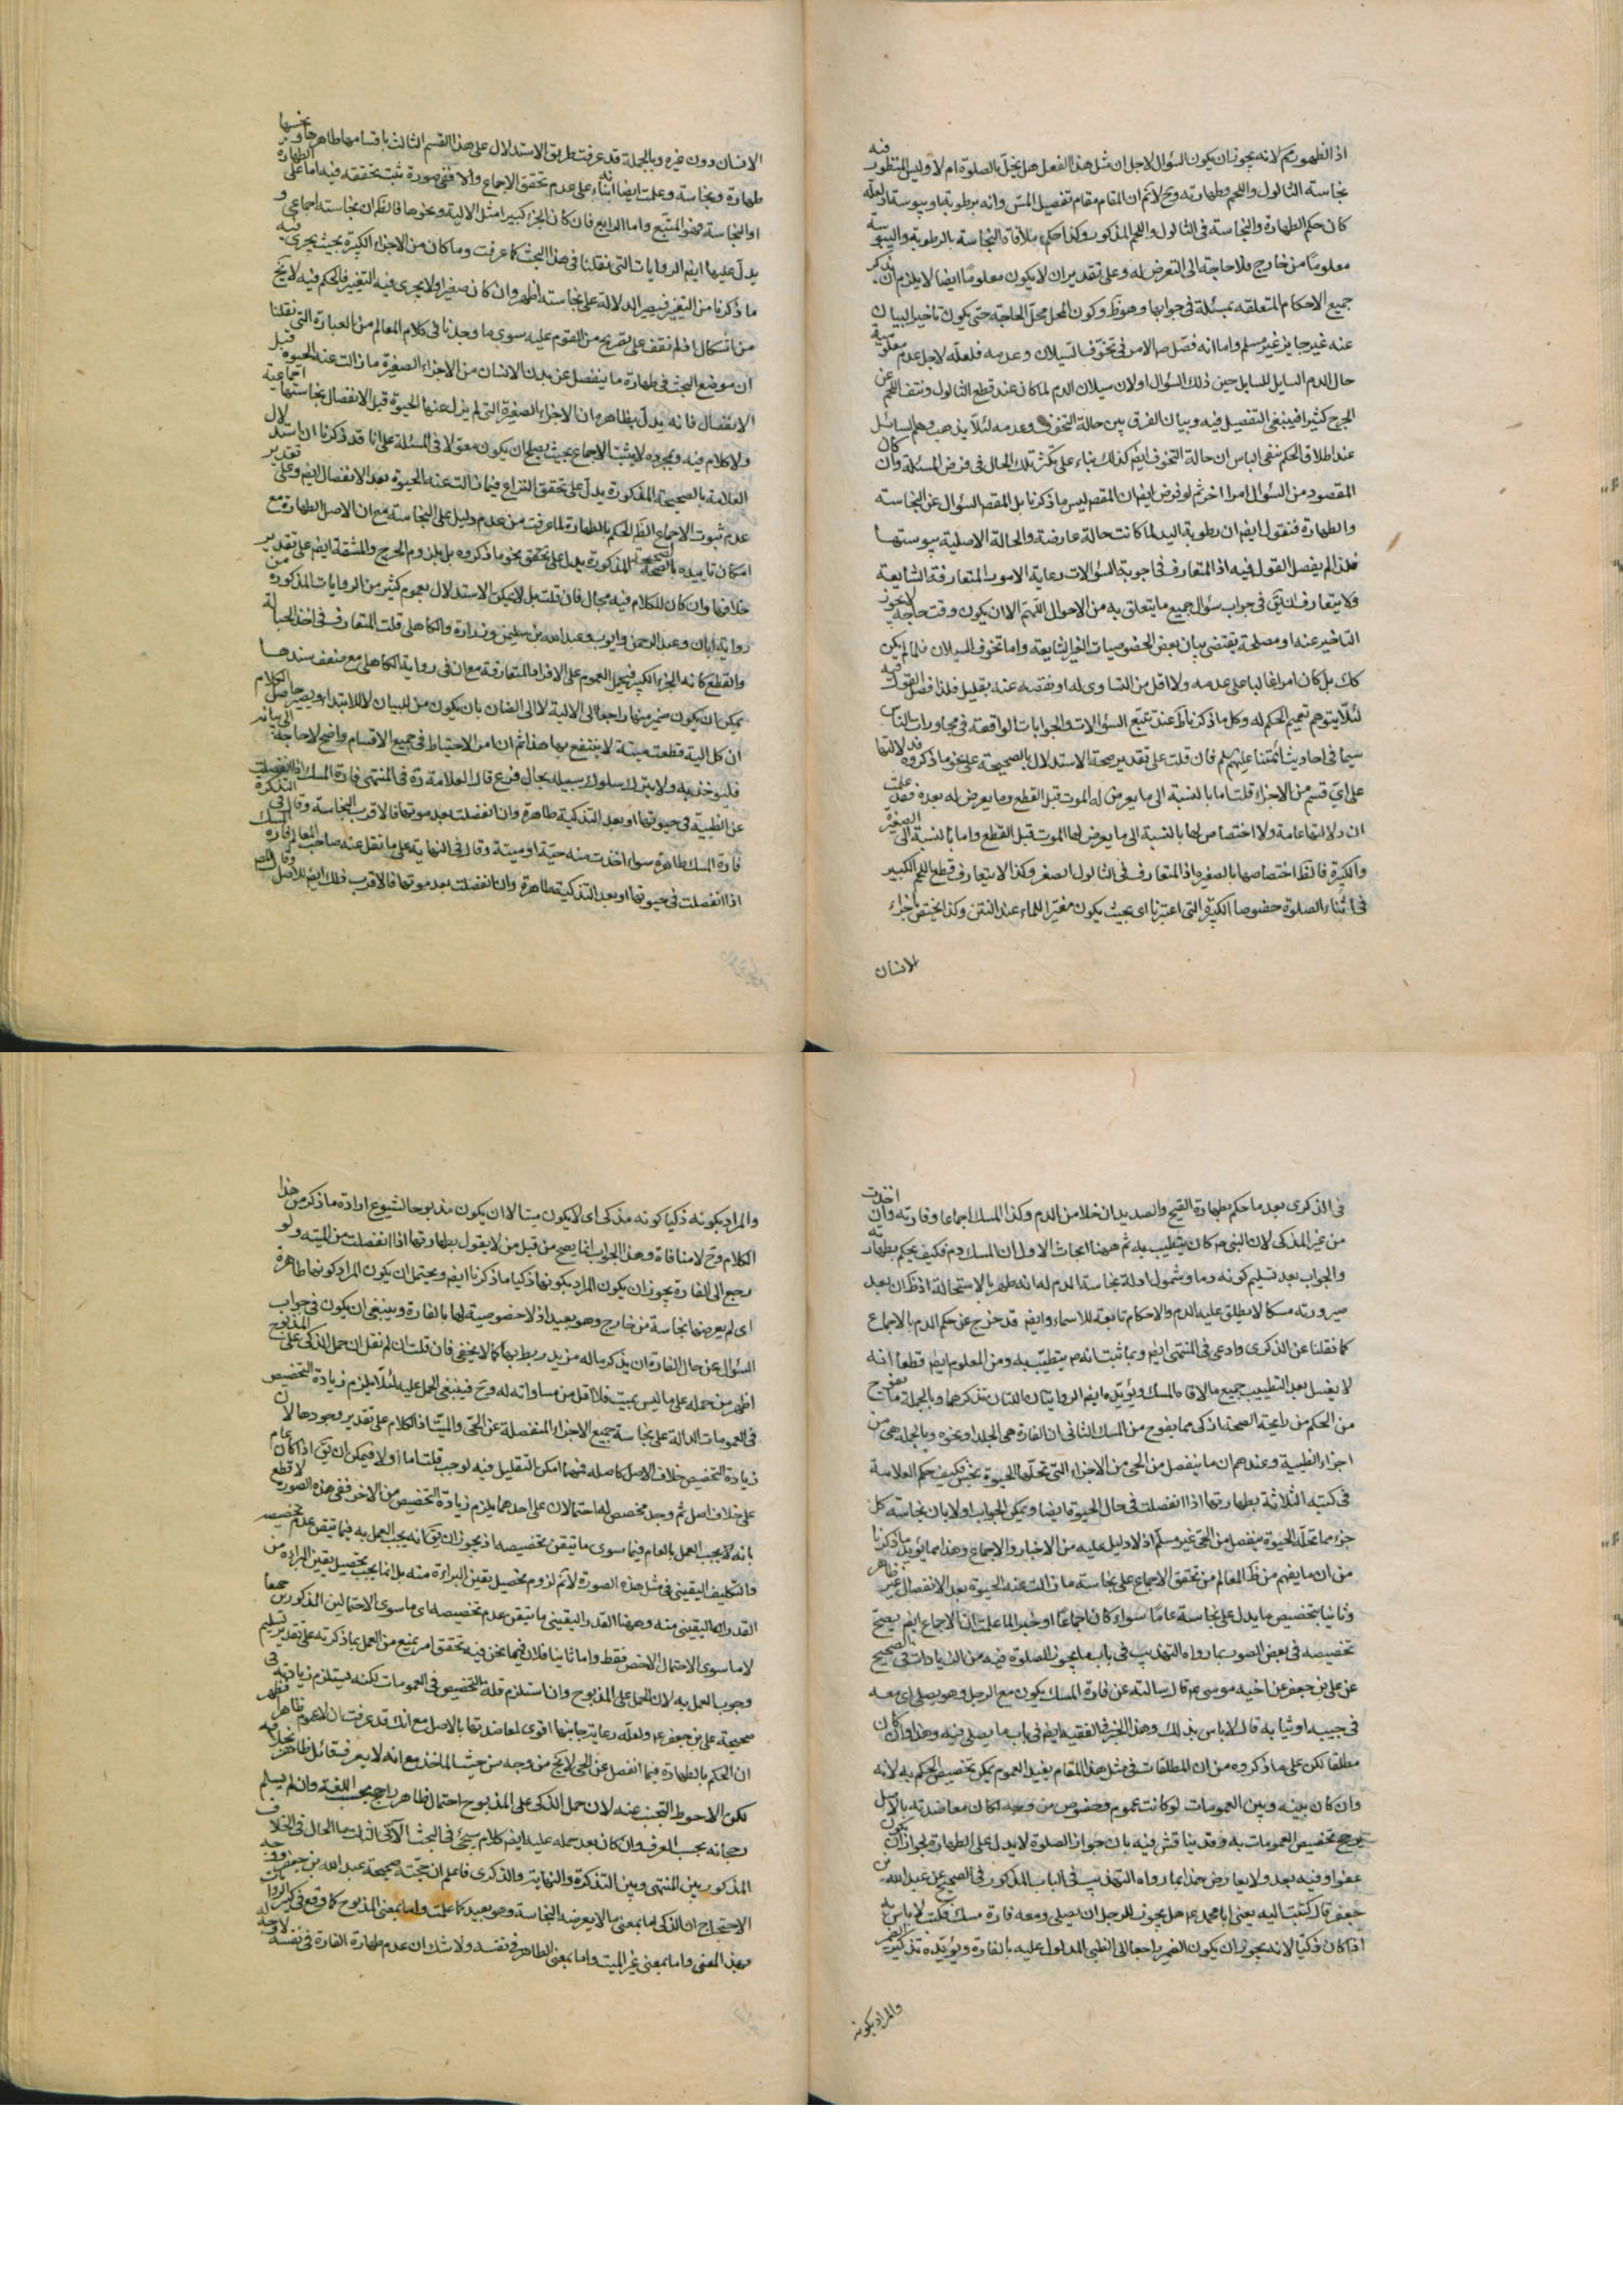 اذ الظهور ثم لانه يجوز ان يكون السؤال لاجل ان مثل هذا الفعل هل يخلّ بالصلوة ام لا وليس المنظور فيه
نجاسته الثالول واللحم وطهارته وح لا ثم ان المقام مقام تفصيل المسّ وانه برطوبة او يبوسة اذ لعلّه
كان حكم الطهارة والنجاسة فى الثالول واللحم المذكور وكذا حكم ملاقاة النجاسة بالرطوبة واليبوسة
معلومًا من خارج فلا حاجة الى التعرض له وعلى تقدير ان لا يكون معلومًا ايضا لا يلزم ان يذكر
جميع الاحكام المتعلقه بمسئلة فى جوابها وهو ظ وكون المحل محلّ الحاجة حتى يكون تاخير البيان
عنه غير جايز غير مسلم واما انه فصّل ص الامر فى تخوّف السيلان وعدمه فلعلّه لاجل عدم معلومية
حال الدم السايل للسايل حين ذلك السؤال او لان سيلان الدم لما كان عند قطع الثالول ونتف اللحم عن
الجرح كثيرا فينبغى التفصيل فيه وبيان الفرق بين حالة التخوف وعدمه لئلا يذهب وهم السائل
عند اطلاق الحكم بنفى الباس ان حالة التخوف ايضم كذلك بناء على تكثر تلك الحال فى فرض المسئلة وان كان
المقصود من السؤال امرا اخر ثم لو فرض ايضم ان المقصم ليس ما ذكرنا بل المقصم السؤال عن النجاسة
والطهارة فنقول ايضم ان رطوبة اليد لما كانت حالة عارضة والحالة الاصلية يبوستها
فلذا لم يفصل القول فيه اذ المتعارف فى اجوبة السؤالات رعاية الامور المتعارفة الشايعة
فلا يتعارف ان يق فى جواب سؤال جميع ما يتعلق به من الاحوال اللهم الا ان يكون وقت حاجة لا يجوز
التاخير عنه او مصلحة يقتضى بيان بعض الخصوصيات الغير الشايعة واما تخوف السيلان فلما لم يكن
كك بل كان امرا غالبا على عدمه ولا اقل من التساوى له او نقصه عنه بقليل فلذا فصل القول فيه
لئلا يتوهم تعميم الحكم له وكل ما ذكرنا ظ عند تتبع السؤالات والجوابات الواقعة فى محاورات الناس
سيما فى احاديث ائمتنا عليهم لم فان قلت على تقدير صحة الاستدلال بالصحيحة على نحو ما ذكروه فدلالتها
على اى قسم من الاجزاء قلت اما بالنسبة الى ما يعرض له الموت قبل القطع وما يعرض له بعده فقد علمت
ان دلالتها عامة ولا اختصاص لها بالنسبة الى ما يعرض لها الموت قبل القطع واما بالنسبة الى الصغيرة
والكبيرة فالظ اختصاصها بالصغيره اذ المتعارف فى الثالول الصغر وكذا لا يتعارف قطع اللحم الكبير
فى اثناء الصلوة خصوصا الكبيرة التى اعتبرنا اى بحيث يكون مغيّرا للماء عند النتن وكذا يختص باجزاء
الانسان
الانسان دون غيره وبالجملة قد عرفت طريق الاستدلال على هذا القسم الثالث باقسامها طاهرها ونجسها
طهارة ونجاسة وعلمت ايضا ابتناءه على عدم تحقق الاجماع والا ففى صورة ثبت تحققه فيه اما على الطهارة
او النجاسة فهو المتّبع واما الرابع فان كان الجزء كبيرا مثل الالية ونحوها فالظم ان نجاسته اجماعى و
يدل عليها ايضم الروايات التى نقلنا فى هذا البحث كما عرفت وما كان من الاجزاء الكبيرة بحيث يجرى فيه
ما ذكرنا من التغير فيصير الدلالة على نجاسته اظهر وان كان صغيرا ولا يجرى فيه التغيير فالحكم فيه لا يخ
من اشكال اذ لم نقف على تصريح من القوم عليه سوى ما وجدنا فى كلام المعالم من العبارة التى نقلنا
ان موضع البحث فى طهارة ما ينفصل عن بدن الانسان من الاجزاء الصغيرة ما زالت عنه الحيوة قبل
الانفصال فانه يدلّ بظاهره ان الاجزاء الصغيرة التى لم يزل عنها الحيوة قبل الانفصال نجاستها اجماعية
ولا كلام فيه وبمجرده لا يثبت الاجماع بحيث يصلح ان يكون معوّلا فى المسئلة على انا قد ذكرنا ان استدلال
العلامة بالصحيحة المذكورة يدل على تحقق النزاع فيما زالت عنه الحيوة بعد الانفصال ايضم وعلى تقدير
عدم ثبوت الاجماع الظم الحكم بالطهارة لما عرفت من عدم دليل على النجاسة مع ان الاصل الطهارة مع
امكان تاييده بالصحيحة المذكورة يدل على تحقق نحو ما ذكروه بل بلزوم الحرج والمشقة ايضم على تقدير
خلافها وان كان للكلام فيه مجال فان قلت بل لا يمكن الاستدلال بعموم كثير من الروايات المذكورة من
رواية ابان وعبد الرحمن وايوب وعبد الله بن سليمن وزرارة والكاهلى قلت المتعارف فى اخذ الحبالة
والقطع كانه الجزء الكبير فيحمل العموم على الافراد المتعارفة مع ان فى رواية الكاهلى مع ضعف سندها
يمكن ان يكون ضمير منها راجعا الى الالية لا الى الضان بان يكون من للبيان لا للابتداء ويصير حاصل الكلام
ان كل الية قطعت ميتة لا ينتفع بها هذا ثم ان امر الاحتياط فى جميع الاقسام واضح لا حاجة الى بيانه
فليوخذ به ولا يترك سلوك سبيله بحال فرع قال العلامة ره فى المنتهى فارة المسك اذا انفصلت
عن الظبية فى حيوتها او بعد التذكية طاهرة وان انفصلت بعد موتها فالاقرب النجاسة وقال فى التذكرة
فارة المسك طاهرة سواء اخذت منه حيّة او ميتة وقال فى النهاية على ما نقل عنه صاحب المعالم فارة المسك
اذا انفصلت فى حيوتها او بعد التذكية طاهرة وان انفصلت بعد موتها فالاقرب ذلك ايضم للاصل وقال الشم
فى الذكرى بعد ما حكم بطهارة القيح والصديد ان خلا من الدم وكذا المسك اجماعا وفارته وان اخذت
من غير المذكى لان النبى ص كان يتطيب به ثم ههنا ابحاث الاول ان المسك دم فكيف يحكم بطهارته
والجواب بعد تسليم كونه دما وشمول ادلة نجاسة الدم له انه طهر بالاستحالة اذ ظ ان بعد
صيرورته مسكا لا يطلق عليه الدم والاحكام تابعة للاسماء وايضم قد خرج عن حكم الدم بالاجماع
كما نقلنا عن الذكرى وادعى فى المنتهى ايضم وبما ثبت انه ص يتطيّب به ومن المعلوم ايضم قطعا انه
لا يغسل بعد التطييب جميع ما لاقاه المسك ويؤيّده ايضم الروايتان اللتان نذكرهما وبالجملة ما يفوح
من الحكم من رايحة الصحة اذكى مما يفوح من المسك الثانى ان الفارة هى الجلد او نحوه وبالجملة هى من
اجزاء الظبية وعندهم ان ما ينفصل من الحى من الاجزاء التى تحلّها الحيوة نجس فكيف حكم العلامة
فى كتبه الثلاثة بطهارتها اذا انفصلت فى حال الحيوة ايضا ويمكن الجواب اولا بان نجاسة كل
جزء مما تحلّه الحيوة منفصل من الحى غير مسلّم اذ لا دليل عليه من الاخبار والاجماع وهذا مما يؤيد ما ذكرنا
من ان ما يفهم من ظ المعالم من تحقق الاجماع على نجاسة ما زالت عنه الحيوة بعد الانفصال غير ظاهر
وثانيا بتخصيص ما يدل على نجاسة عامّا سواء كان اجماعًا او خبرا لما علمت ان الاجماع ايضم يصحّ
تخصيصه فى بعض الصور بما رواه التهذيب فى باب ما يجوز الصلوة فيه من الزيادات فى الصحيح
عن على بن جعفر عن اخيه موسى ع قال سالته عن فارة المسك يكون مع الرجل وهو يصلى اى معه
فى جيبه او ثيابه قال لا باس بذلك وهذا الخبر فى الفقيه ايضم فى باب ما يصلى فيه وهذا وان كان
مطلقا لكن على ما ذكروه من ان المطلقات فى مثل هذا المقام يفيد العموم يمكن تخصيص الحكم به لانه
وان كان بينه وبين العمومات لو كانت عموم وخصوص من وجه لكان معاضدته بالاصل
يرجح تخصيص العمومات به وقد يناقش فيه بان جواز الصلوة لا يدل على الطهارة لجواز ان يكون
عفوا وفيه بعد ولا يعارض هذا بما رواه التهذيب فى الباب المذكور فى الصحيح عن عبد الله بن
جعفر قال كتبت اليه يعنى ابا محمد ع هل يجوز للرجل ان يصلى ومعه فارة مسك فكتب لا باس به
اذا كان ذكيا لانه يجوز ان يكون الضمير راجعا الى الظبى المدلول عليه بالفارة ويؤيّده تذكير الضمير
والمراد بكونه
والمراد بكونه ذكيا كونه مذكى اى لا يكون ميتا لا ان يكون مذبوحا لشيوع ارادة ما ذكر من هذا
الكلام وح لا منافاة وهذا الجواب انما يصح من قبل من لا يقول بطهارتها اذا انفصلت من الميته ولو
رجع الى الفارة يجوز ان يكون المراد بكونها ذكيا ما ذكرنا ايضم ويحتمل ان يكون المراد كونها طاهرة
اى لم يعرضها نجاسة من خارج وهو بعيد اذ لا خصوصية لها بالفارة وينبغى ان يكون فى جواب
السؤال عن حال الفارة ان يذكر ما له مزيد ربط بها كما لا يخفى فان قلت ان لم نقل ان حمل الذكى على المذبوح
اظهر من حمله على ما ليس بميت فلا اقل من مساواته له وح فينبغى الحمل عليه لئلا يلزم زيادة التخصيص
فى العمومات الدالة على نجاسة جميع الاجزاء المنفصلة عن الحى والميت اذ الكلام على تقدير وجودها لان
زيادة التخصيص خلاف الاصل كاصله فمهما امكن التقليل فيه لوجب قلت اما اولا فيمكن ان يق اذا كان عام
على خلاف اصل ثم وجد مخصص لها احتمالان على احدهما يلزم زيادة التخصيص من الاخر ففى هذه الصورة لا قطع
بانه لا يجب العمل بالعام فيما سوى ما تيقن تخصيصه اذ يجوز ان يق انه يجب العمل به فيما تيقن عدم تخصيصه
والتكليف اليقينى فى مثل هذه الصورة لا ثم لزوم تحصيل يقين البراءة منه بل انما يجب تحصيل يقين البراءة من
القدر اليقينى منه وههنا القدر اليقينى ما تيقن عدم تخصيصه اى ما سوى الاحتمالين المذكورين جميعا
لا ما سوى الاحتمال الاخص فقط واما ثانيا فلان فيما نحن فيه تحقق امر يمنع من العمل بما ذكرته على تقدير تسليم
وجوب العمل به لان الحمل على المذبوح وان استلزم قلة التخصيص فى العمومات لكنه يستلزم زيادته فى
صحيحة على بن جعفر ع ولعلّه رعاية جانبها اقوى لمعاضدتها بالاصل مع انك قد عرفت ان لا عموم ظاهر فظهر
ان الحكم بالطهارة فيما انفصل عن الحى لا يخ من وجه من حيث الماخذ مع انه لا يعرف قائل ظاهر بخلافه
لكن الاحوط التجنب عنه لان حمل الذكى على المذبوح احتمال ظاهر راجح بحسب اللغة وان لم يسلم
رجحانه بحسب العرف وان كان بعد حمله عليه ايضم كلام سيجئ فى البحث الآتى الثالث ما الحال فى الخلاف
المذكور بين المنتهى وبين التذكرة والنهاية والذكرى فاعلم ان حجّته صحيحة عبد الله بن جعفر ووجه
الاحتجاج ان الذكى اما بمعنى ما لا يعرضه النجاسة وهو بعيد كما علمت واما بمعنى المذبوح كما وقع فى كثير الروايات
بهذا المعنى واما بمعنى غير الميت واما بمعنى الطاهر فى نفسه ولا شك ان عدم طهارة الفارة فى نفسه لا وجه له